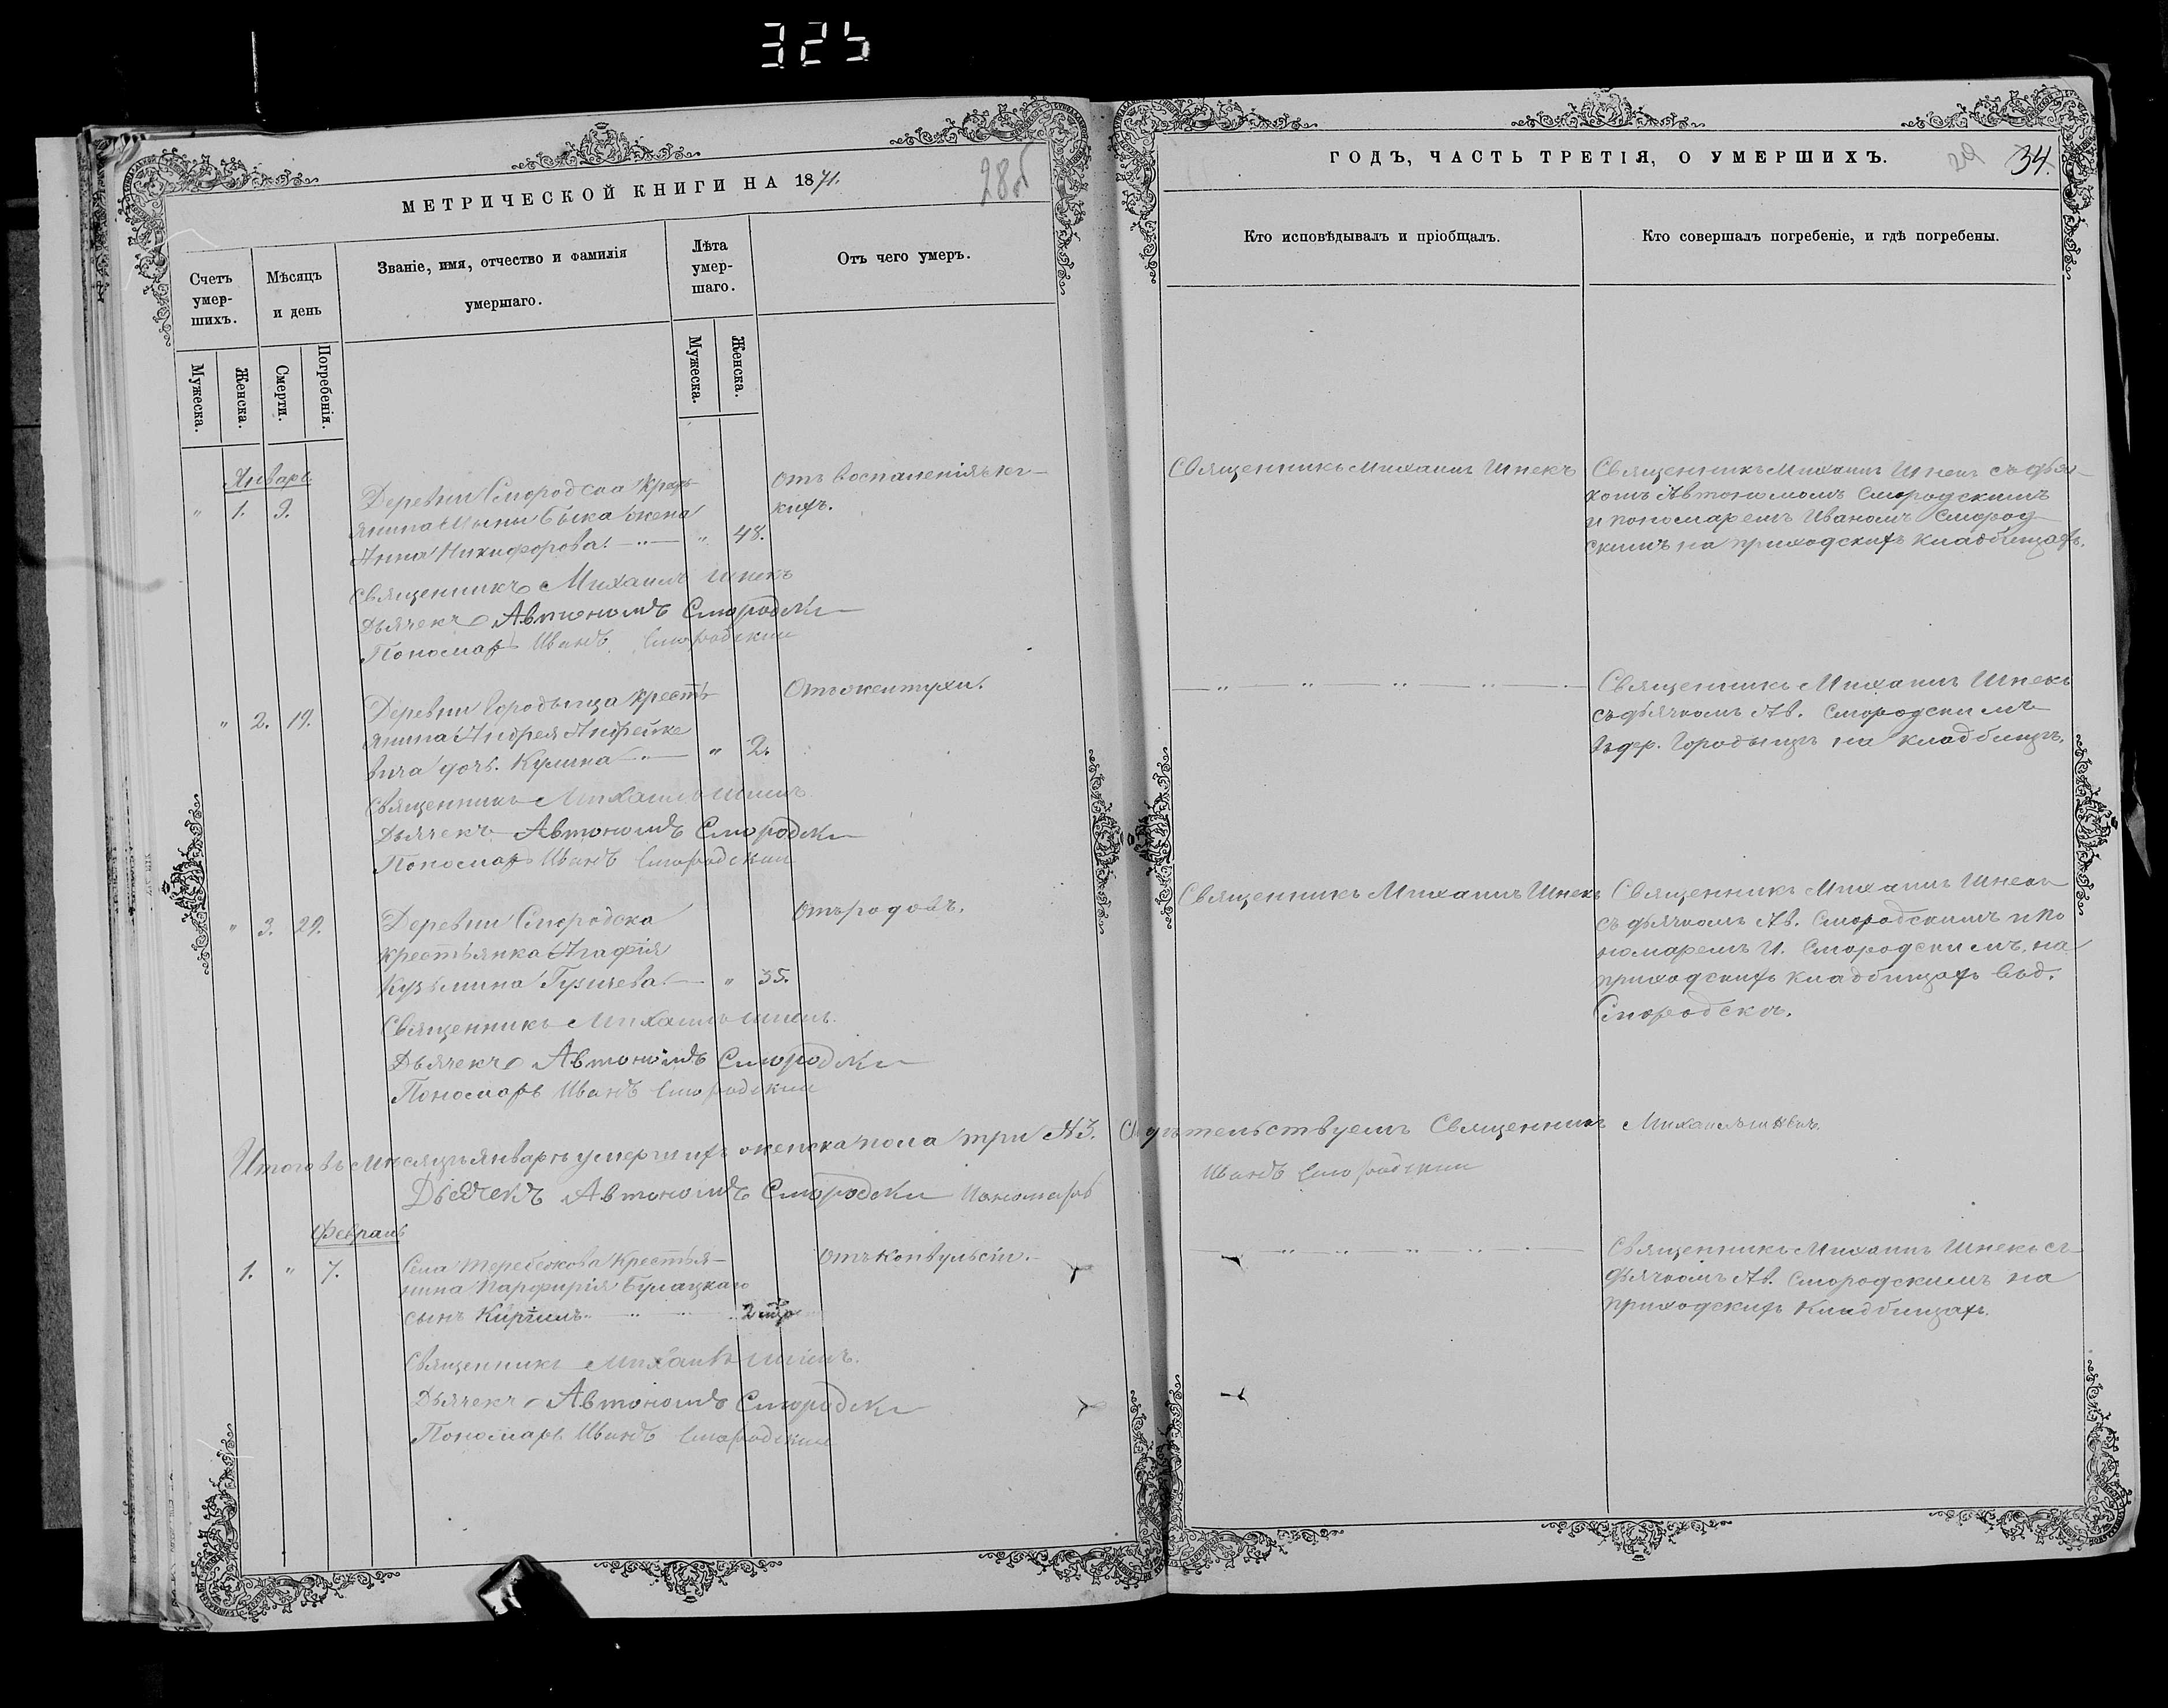 325
МЕТРИЧЕСКОЙ КНИГИ НА 1871.
28об
Счетъ умер-шихъ.
Мѣсяцъ и день
Званіе, имя, отчество и фамилія умершаго.
Лѣта умер-шаго.
Отъ чего умеръ.
Мужеска.
Женска.
Смерти.
Погребенія.
Мужеска.
Женска.
Январь
" 1. 9.
Деревни Смородска крестъ
янина Быка жена
Анна Никифорова. — " — " 48.
Отъ воспаленія лег-
кихъ.
Священникъ Михаилъ Шнекъ
Дьячекъ Автономъ Смородски
Пономарь Иванъ Смородский
" 2. 19.
Деревни Городыща кресть
янина Андрея Андрейке
вича дочь Кулина — " — " 2.
Отъ жентухи.
Священникъ Михаилъ Шнекъ
Дьячекъ Автономъ Смородски
Пономарь Иванъ Смородский
" 3. 29.
Деревни Смородска
крестьянка Агафія
Кузьмина Гузичева — " 35.
Отъ родовъ.
Священникъ Михаилъ Шнекъ
Дьячекъ Автономъ Смородски
Пономарь Иванъ Смородский
Итого въ мѣсяцѣ Январѣ умершихъ женска пола три №3.
Дьячекъ Автономъ Смородски Пономарь
Февраль
1. " 7.
Села Теребежова Крестья-
нина Парфирія Булацкаго
сынъ Кириллъ 2
Отъ конвульсіи.
Священникъ Михаилъ Шнекъ
Дьячекъ Автономъ Смородски
Пономарь Иванъ Смородский
ГОДЪ, ЧАСТЬ ТРЕТІЯ, О УМЕРШИХЪ.
29 34.
Кто исповѣдывалъ и пріобщалъ.
Кто совершалъ погребеніе, и гдѣ погребены.
Священникъ Михаилъ Шнекъ
Священникъ Михаилъ Шнекъ съ дьяч-
комъ Автономомъ Смородскимъ
и пономаремъ Иваномъ Смород
скимъ на приходскихъ кладбищахъ.
— " — " — " — " —
Священникъ Михаилъ Шнекъ
съ дьячкомъ Ав. Смородскимъ
въ дер. Городыщѣ на кладбищѣ.
Священникъ Михаилъ Шнекъ
Священникъ Михаилъ Шнекъ
съ дьячкомъ Ав. Смородскимъ и по
номаремъ И. Смородскимъ на
приходскихъ кладбищахъ въ д.
Смородскѣ.
Свидѣтельствуемъ Священникъ Михаилъ Шнекъ
Иванъ Смородский
— " — " — " — " —
Священникъ Михаилъ Шнекъ съ
дьячкомъ Ав. Смородскимъ на
приходскихъ кладбищахъ.